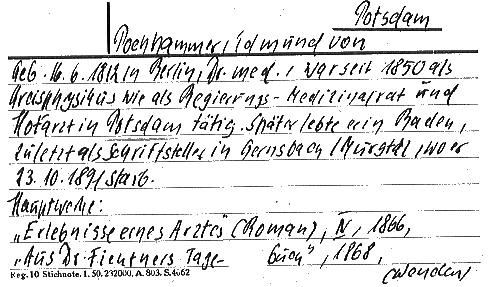 Potsdam
Pochhammer, Edmund von
geb. 16.6.1812 in Berlin, Dr. med., war seit 1850 als
Kreisphysikus wie als Regierungs-Medizinalrat und
Hofarzt in Potsdam tätig. Später lebte er in Baden,
zuletzt als Schriftsteller in Gernsbach (Murgtal), wo er
23.10.1891 starb.
Hauptwerke:
„Erlebnisse eines Arztes" (Roman), IV, 1866,
„Aus Dr. Fientners Tage- buch", 1868,
Reg. 10 Stichnote. I. 50. 232000. A. 803. S. 4062